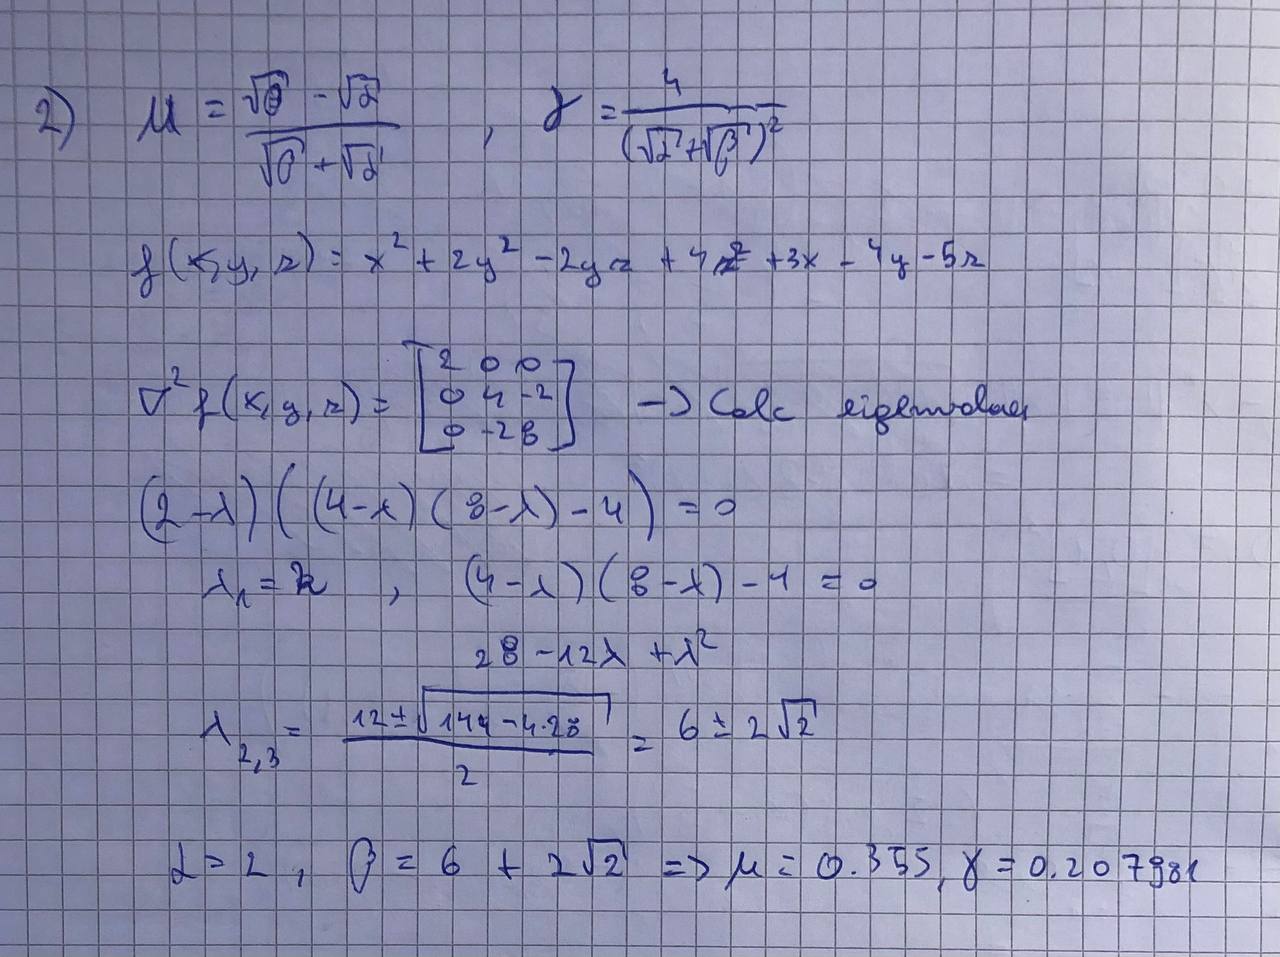 2) μ = (√β - √α) / (√β + √α) , γ = 4 / (√α + √β)²
f(x,y,z) = x² + 2y² - 2yz + 4z² + 3x - 4y - 5z
∇² f(x,y,z) = [2 0 0; 0 4 -2; 0 -2 8] -> Calc eigenvalues
(2-λ)((4-λ)(8-λ)-4) = 0
λ₁ = 2 , (4-λ)(8-λ)-4 = 0
28 - 12λ + λ²
λ₂,₃ = (12 ± √(144 - 4·28)) / 2 = 6 ± 2√2
α = 2 , β = 6 + 2√2 => μ = 0.355, γ = 0.207981